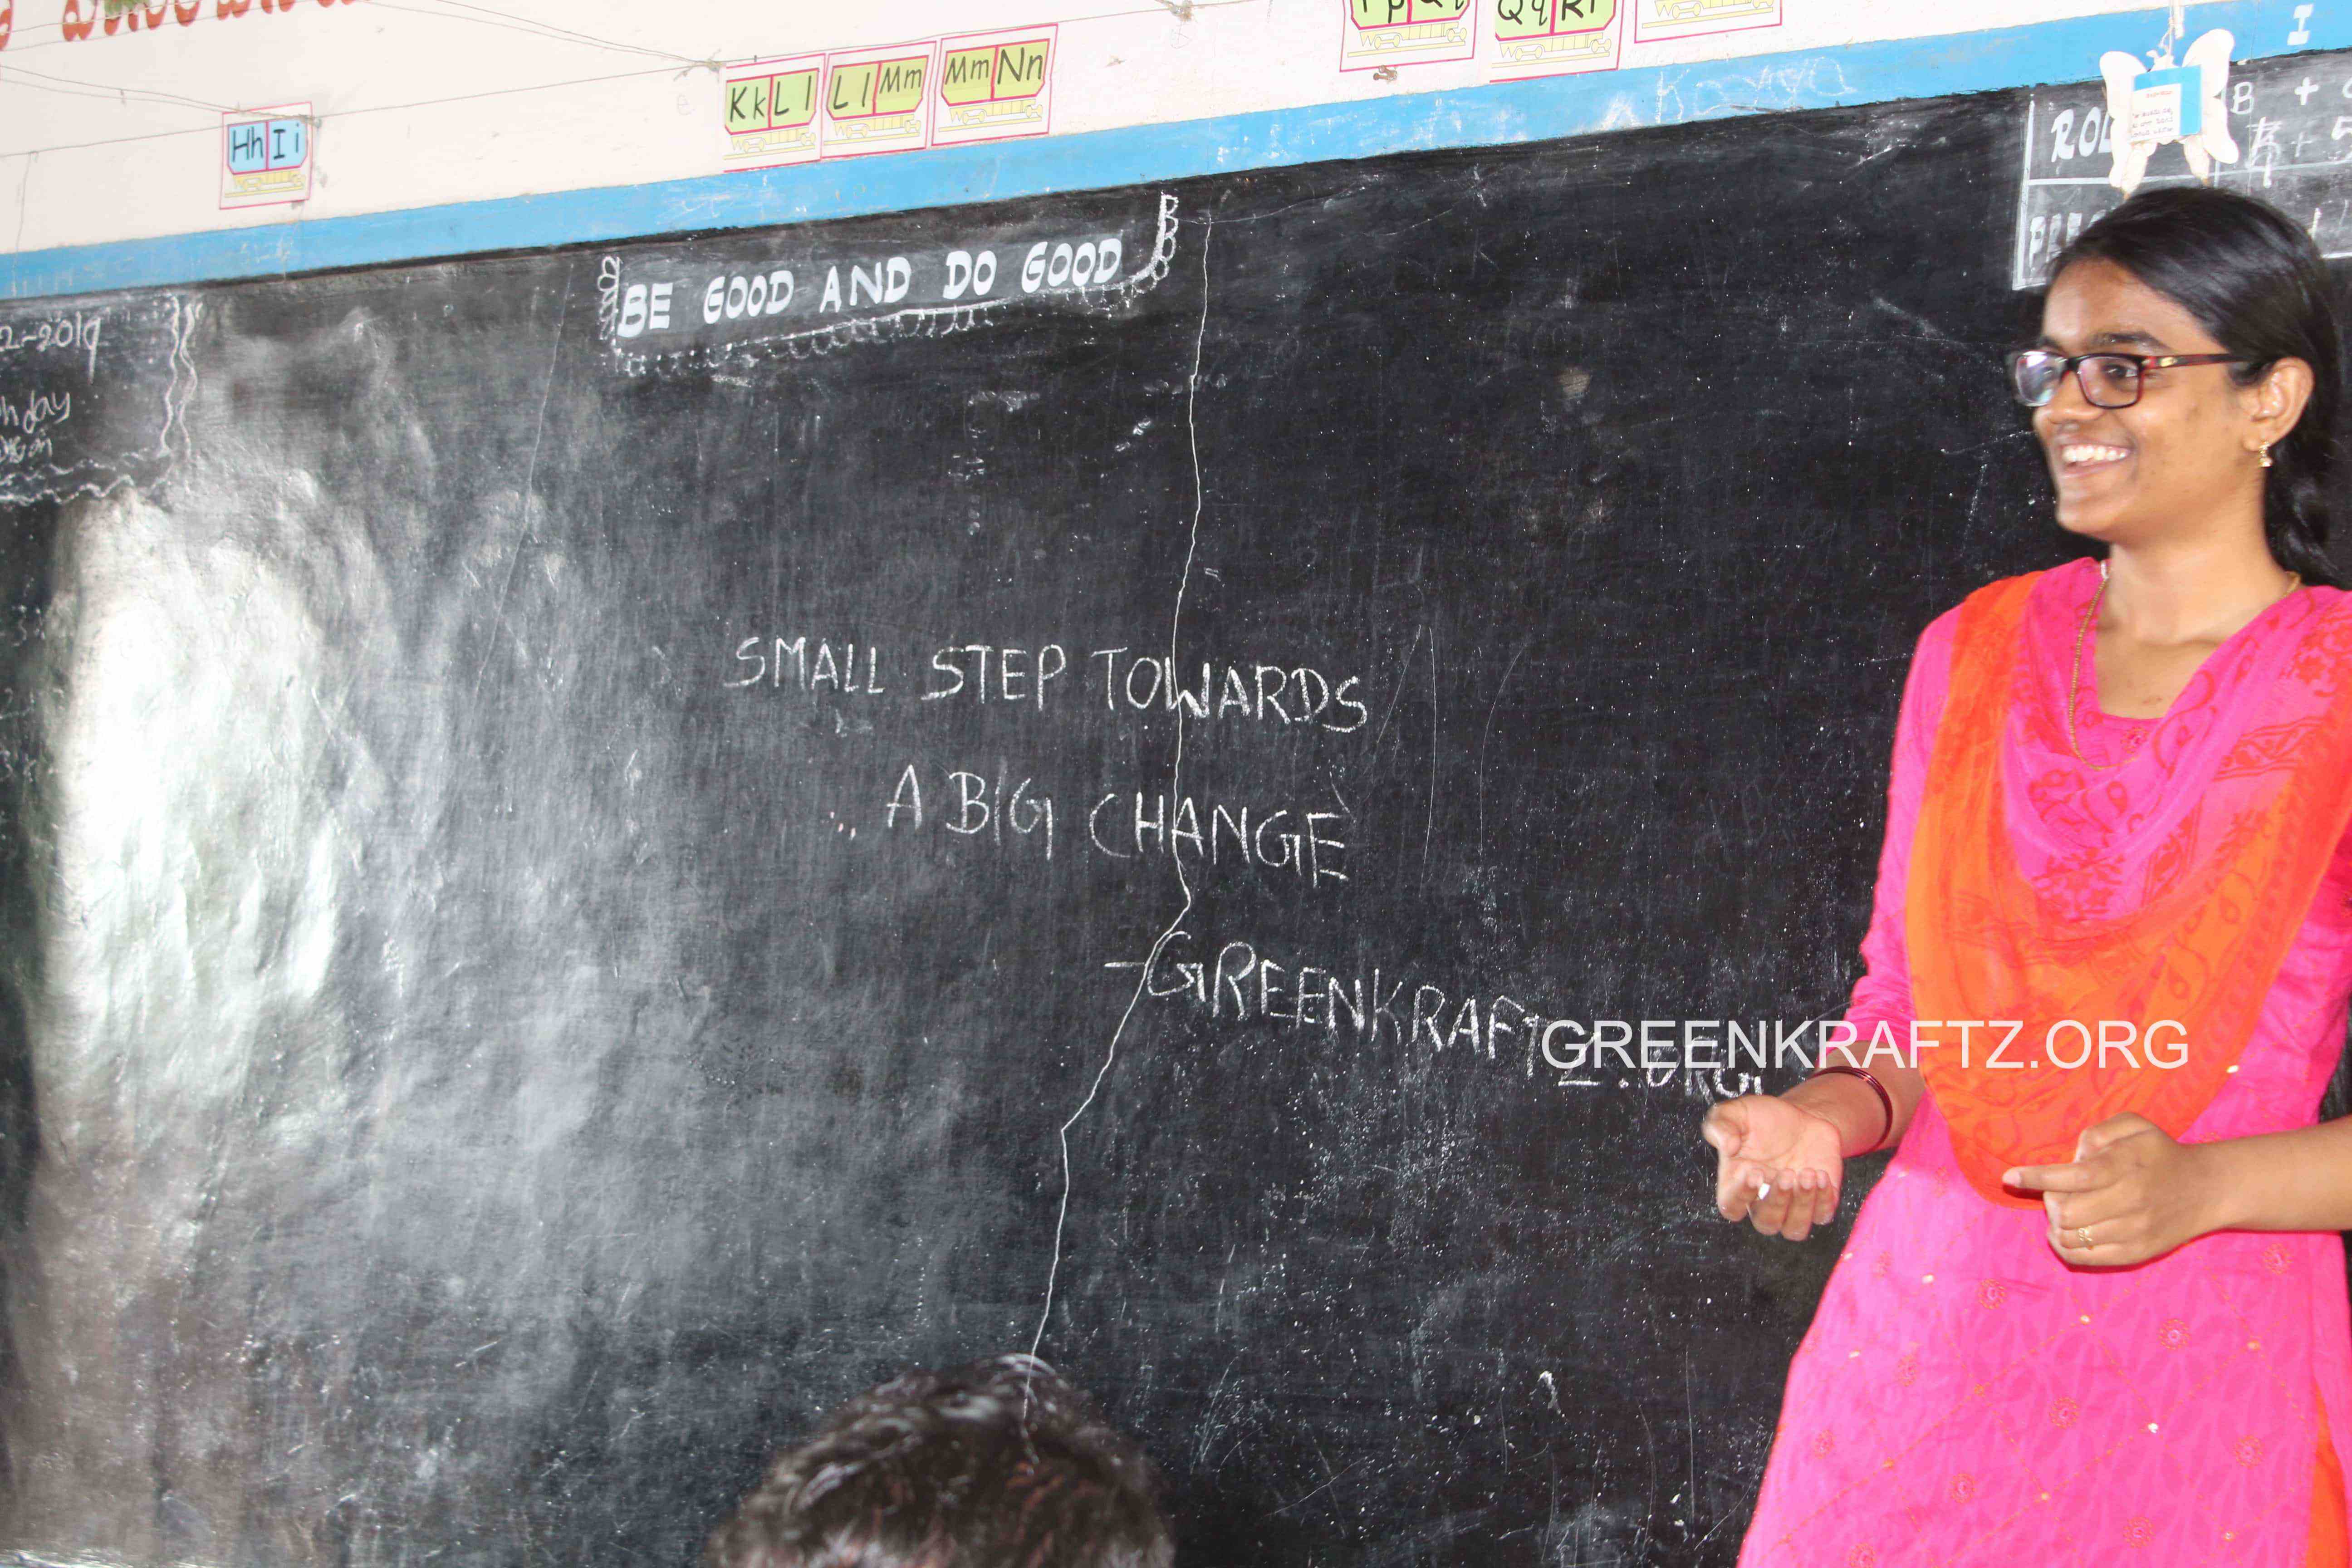 Hh Ii
Kk Ll
Ll Mm
Mm Nn
Qq Rr
I
Kavya
BE GOOD AND DO GOOD
2-2019
SMALL STEP TOWARDS
A BIG CHANGE
-GREENKRAFTZ.ORG
GREENKRAFTZ.ORG